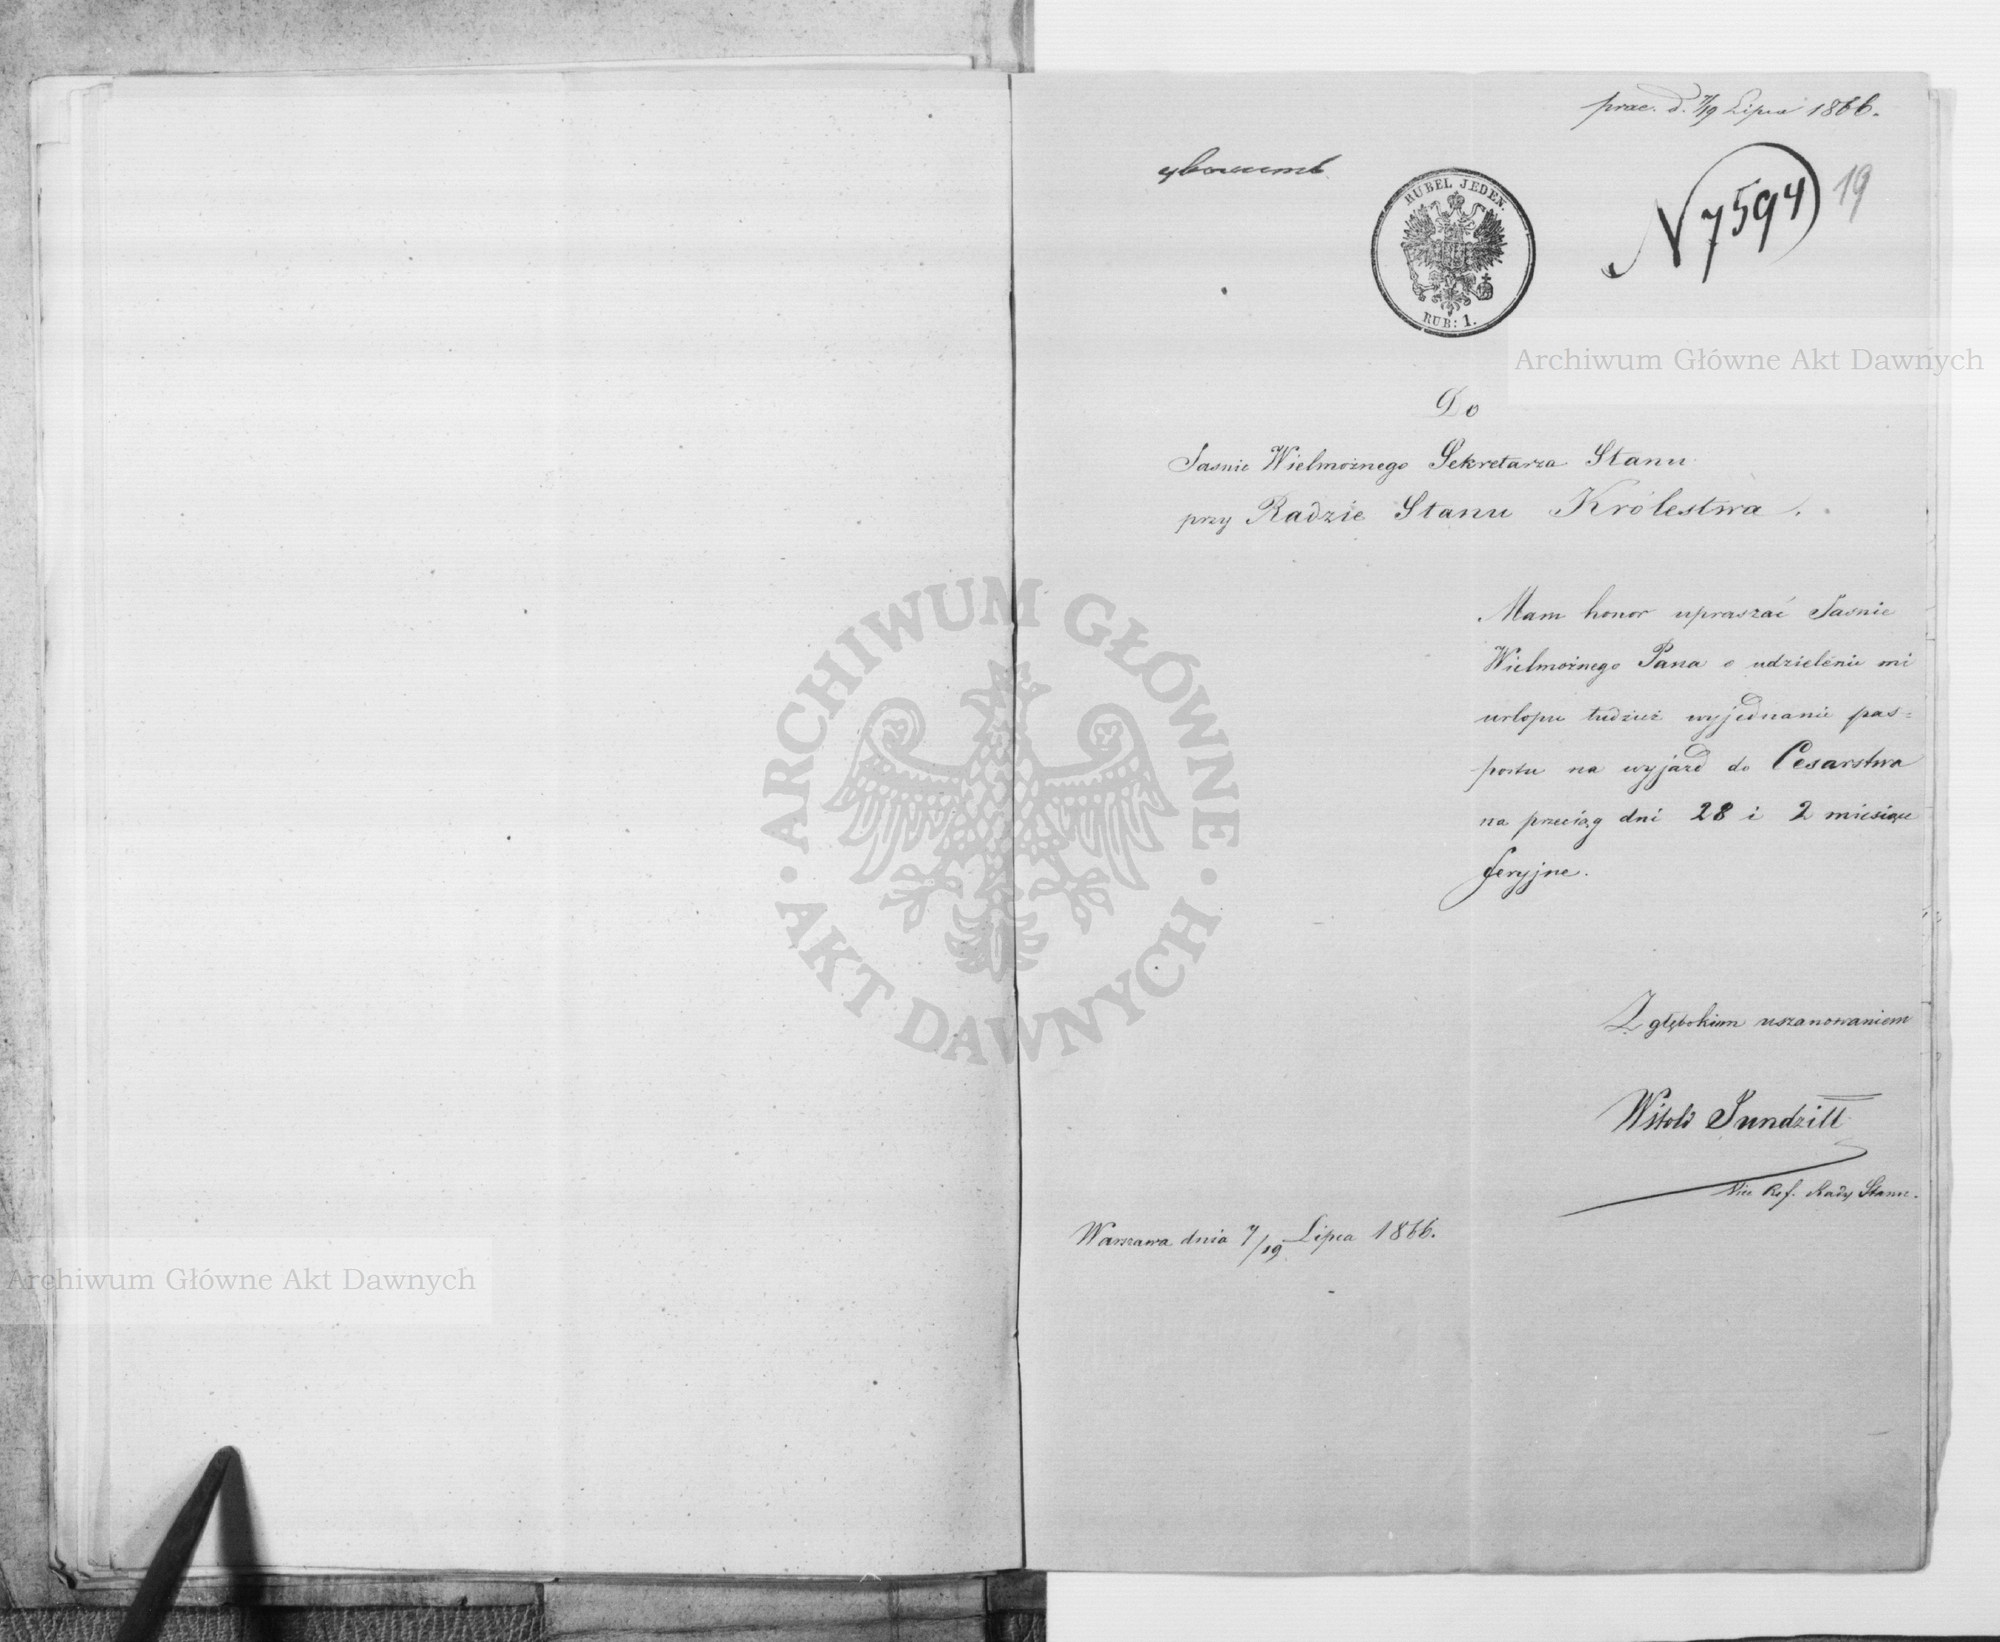 prae. d. 7/19 Lipca 1866.
N 7594
19
RUBEL JEDEN.
RUB: 1.
Archiwum Główne Akt Dawnych
Do
Jasnie Wielmożnego Sekretarza Stanu
przy Radzie Stanu Królestwa.
Mam honor upraszać Jasnie
Wielmożnego Pana o udzielenie mi
urlopu tudzież wyjednanie pas=
portu na wyjazd do Cesarstwa
na przeciąg dni 28 i 2 miesiące
feryjne.
Z głębokiem uszanowaniem
Witold Jundzill
Vice Ref. Rady Stanu.
Warszawa dnia 7/19 Lipca 1866.
ARCHIWUM GŁÓWNE
AKT DAWNYCH
Archiwum Główne Akt Dawnych